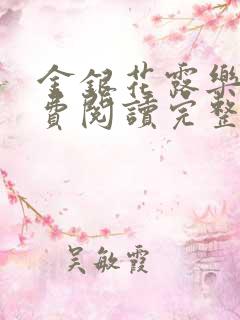 金銀花露樂
費閱讀完整
吳敏霞